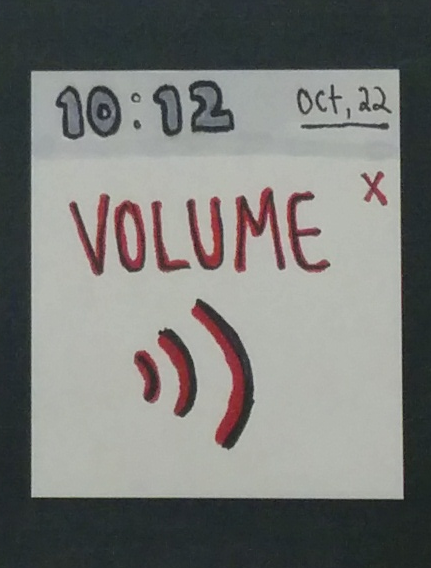 10:12 Oct, 22
X
VOLUME